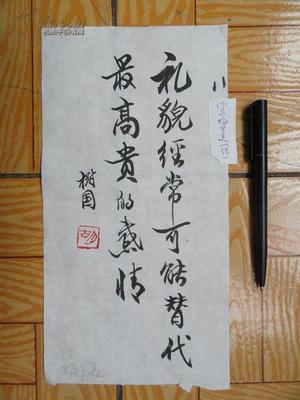 礼貌经常可能替代
最高贵的感情
树国